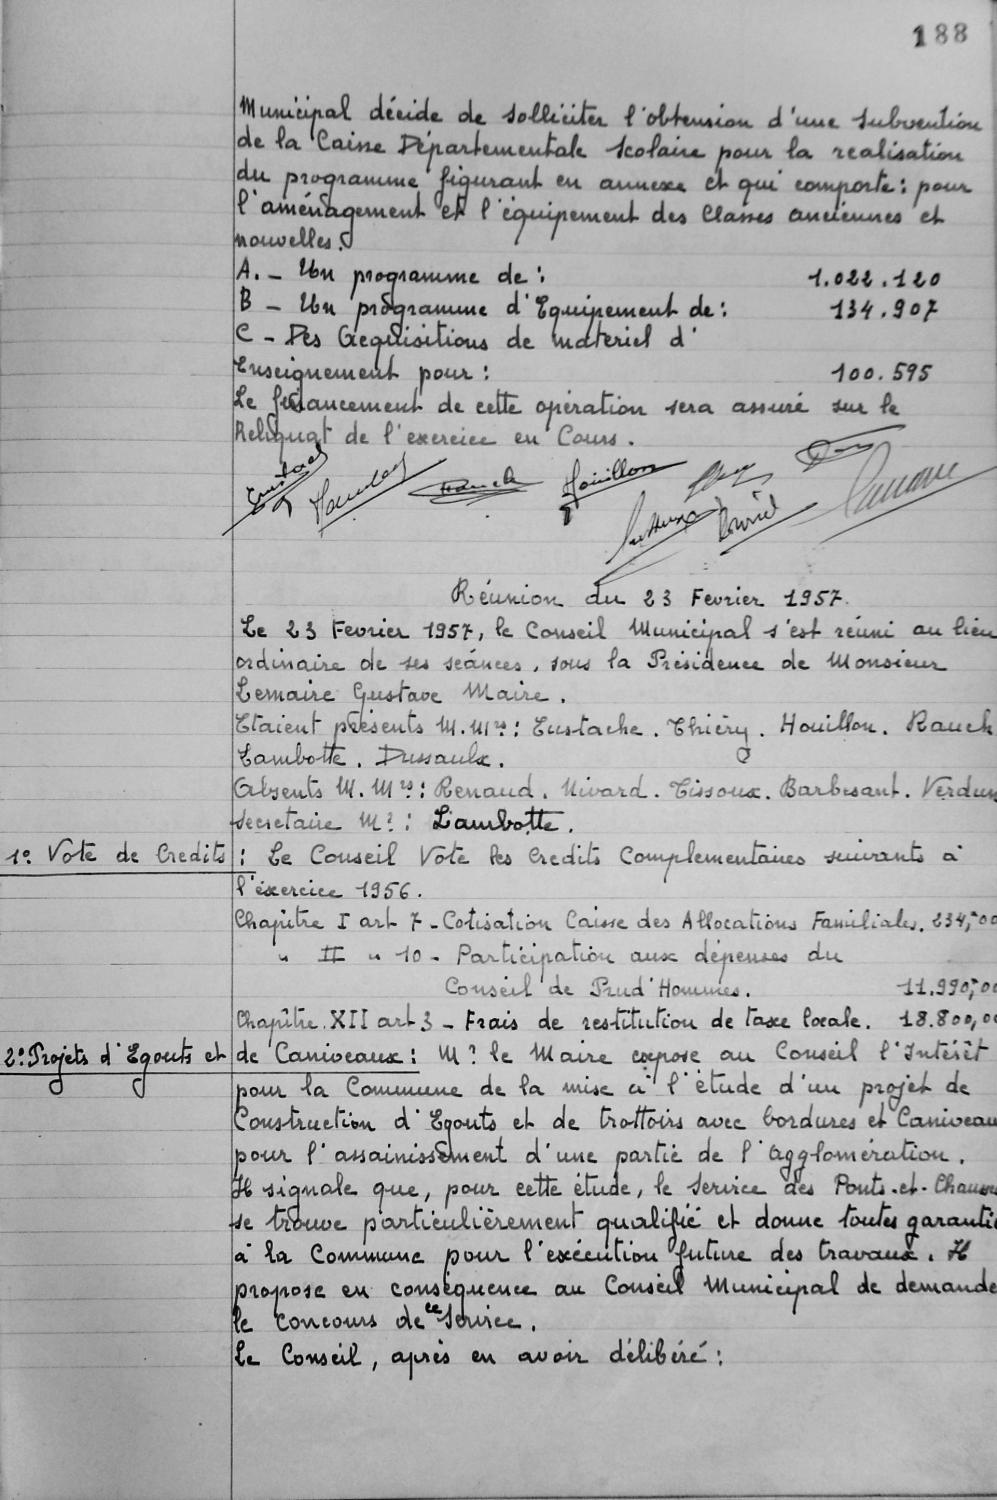 188
Municipal décide de solliciter l'obtension d'une subvention
de la Caisse Départementale scolaire pour la realisation
du programme figurant en annexe et qui comporte : pour
l'aménagement et l'équipement des Classes anciennes et
nouvelles.
A. - Un programme de : 1.022.120
B - Un programme d'Equipement de : 134.907
C - Des Acquisitions de materiel d'
Enseignement pour : 100.595
Le financement de cette opération sera assuré sur le
Reliquat de l'exercice en Cours.
Eustache Rauch Houillon
Réunion du 23 Fevrier 1957.
Le 23 Fevrier 1957, le Conseil Municipal s'est réuni au lieu
ordinaire de ses séances, sous la Présidence de Monsieur
Lemaire Gustave Maire.
Etaient présents M.Mrs : Eustache. Thiéry. Houillon. Rauch
Lambotte. Dussaulx.
Absents M.Mrs : Renaud. Nivard. Tissoux. Barbesant. Verdun
secretaire Mr : Lambotte.
1º Vote de Credits : Le Conseil Vote les Credits Complementaires suivants à
l'éxercice 1956.
Chapître I art 7 - Cotisation Caisse des Allocations Familiales. 234,00
" II " 10 - Participation aux dépenses du
Conseil de Prud'Hommes. 11.990,00
Chapître. XII art 3 - Frais de restitution de taxe locale. 18.800,00
2º Projets d'Egouts et de Caniveaux : Mr le Maire expose au Conseil l'Intérêt
pour la Commune de la mise à l'étude d'un projet de
Construction d'Egouts et de trottoirs avec bordures et Caniveau
pour l'assainissement d'une partie de l'agglomération.
Il signale que, pour cette étude, le Service des Ponts-et-Chauss
se trouve particulièrement qualifié et donne toutes garantie
à la Commune pour l'exécution future des travaux. Il
propose en conséquence au Conseil Municipal de demande
le concours de ce Service.
Le Conseil, après en avoir délibéré :